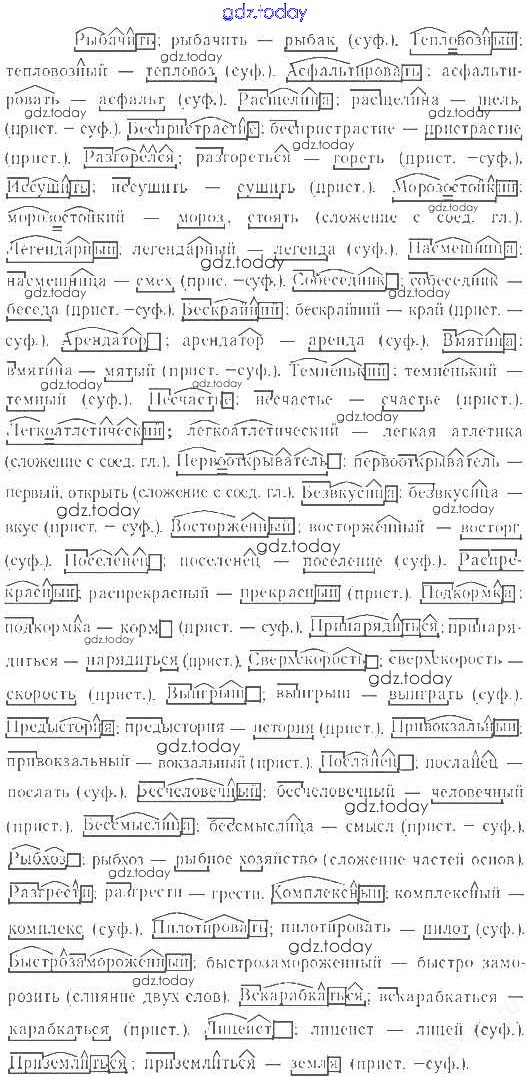 gdz.today
Рыбачить; рыбачить — рыбак (суф.). Тепловозный;
gdz.today
тепловозный — тепловоз (суф.). Асфальтировать; асфальти-
ровать — асфальт (суф.). Расщелина; расщелина — щель
gdz.today gdz.today
(прист. – суф.). Беспристрастие; беспристрастие — пристрастие
(прист.). Разгорелся; разгореться — гореть (прист. –суф.).
gdz.today
Иссушить; иссушить — сушить (прист.). Морозостойкий;
gdz.today
морозостойкий — мороз, стоять (сложение с соед. гл.).
Легендарный; легендарный — легенда (суф.). Насмешница;
gdz.today
насмешница — смех (прис. –суф.). Собеседник; собеседник —
gdz.today gdz.today
беседа (прист. –суф.). Бескрайний; бескрайний — край (прист. —
суф.). Арендатор; арендатор — аренда (суф.). Вмятина;
вмятина — мятый (прист. –суф.). Темненький; темненький —
gdz.today gdz.today
темный (суф.). Несчастье; несчастье — счастье (прист.).
gdz.today
Легкоатлетический; легкоатлетический — легкая атлетика
(сложение с соед. гл.). Первооткрыватель; первооткрыватель —
первый, открыть (сложение с соед. гл.). Безвкусица; безвкусица —
gdz.today gdz.today
вкус (прист. – суф.). Восторженный; восторженный — восторг
gdz.today
(суф.). Поселенец; поселенец — поселение (суф.). Распре-
красный; распрекрасный — прекрасный (прист.). Подкормка;
подкормка — корм (прист. – суф.). Принарядиться; принаря-
gdz.today
диться — нарядиться (прист.). Сверхскорость; сверхскорость —
gdz.today
скорость (прист.). Выигрыш; выигрыш — выиграть (суф.).
Предыстория; предыстория — история (прист.). Привокзальный;
gdz.today
привокзальный — вокзальный (прист.). Посланец; посланец —
послать (суф.). Бесчеловечный; бесчеловечный — человечный
gdz.today
(прист.). Бессмыслица; бессмыслица — смысл (прист. – суф.).
Рыбхоз; рыбхоз — рыбное хозяйство (сложение частей основ).
gdz.today
Разгрести; разгрести — грести. Комплексный; комплексный —
комплекс (суф.). Пилотировать; пилотировать — пилот (суф.).
gdz.today
Быстрозамороженный; быстрозамороженный — быстро замо-
gdz.today
розить (слияние двух слов). Вскарабкаться; вскарабкаться —
карабкаться (прист.). Лицеист; лицеист — лицей (суф.).
gdz.today
Приземлиться; приземлиться — земля (прист. –суф.).